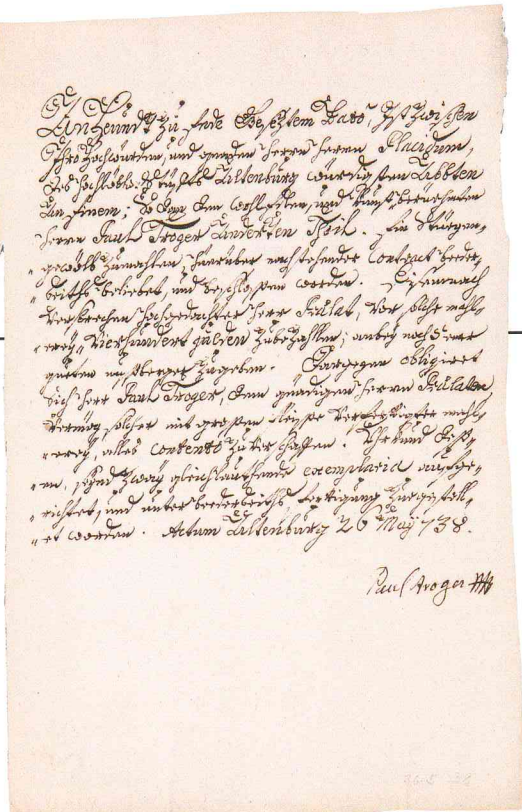 An heundt zu Ende gesezten Dato, Ist zwischen
Ihro Hochwürden, und gnaden Herrn Herrn Placidum,
des hochlöbl: Stüffts Altenburg würdigsten Abbten
An Einem; So dan dem wohl Edlen, und Kunstberuehmten
Herrn Paul Troger Anderten Theil. Ein Stiegen-
-gewölb zumahlen, hierüber nachstehender Contract beeder-
-seiths beliebet, und beschlossen worden. Disemnach
Versprechen hochgedachter Herr Prælat, vor solche mahl-
-erey, Vierhundert gulden zubezahlen; anbey noch
guetten zugeben. Dargegen obligiret
sich Herr Paul Troger, dem gnädigen Herrn Prælaten
Vermög solcher mit grossen Fleysse Verfertigter mahl-
-erey, alles contento zuverschaffen. Uhrkund dess-
-en, seynd zway gleichlauthende exemplaria aufge-
-richtet, und unter beederseiths fertigung zuegestell-
-et worden. Actum Altenburg 26 May 738.
Paul Troger